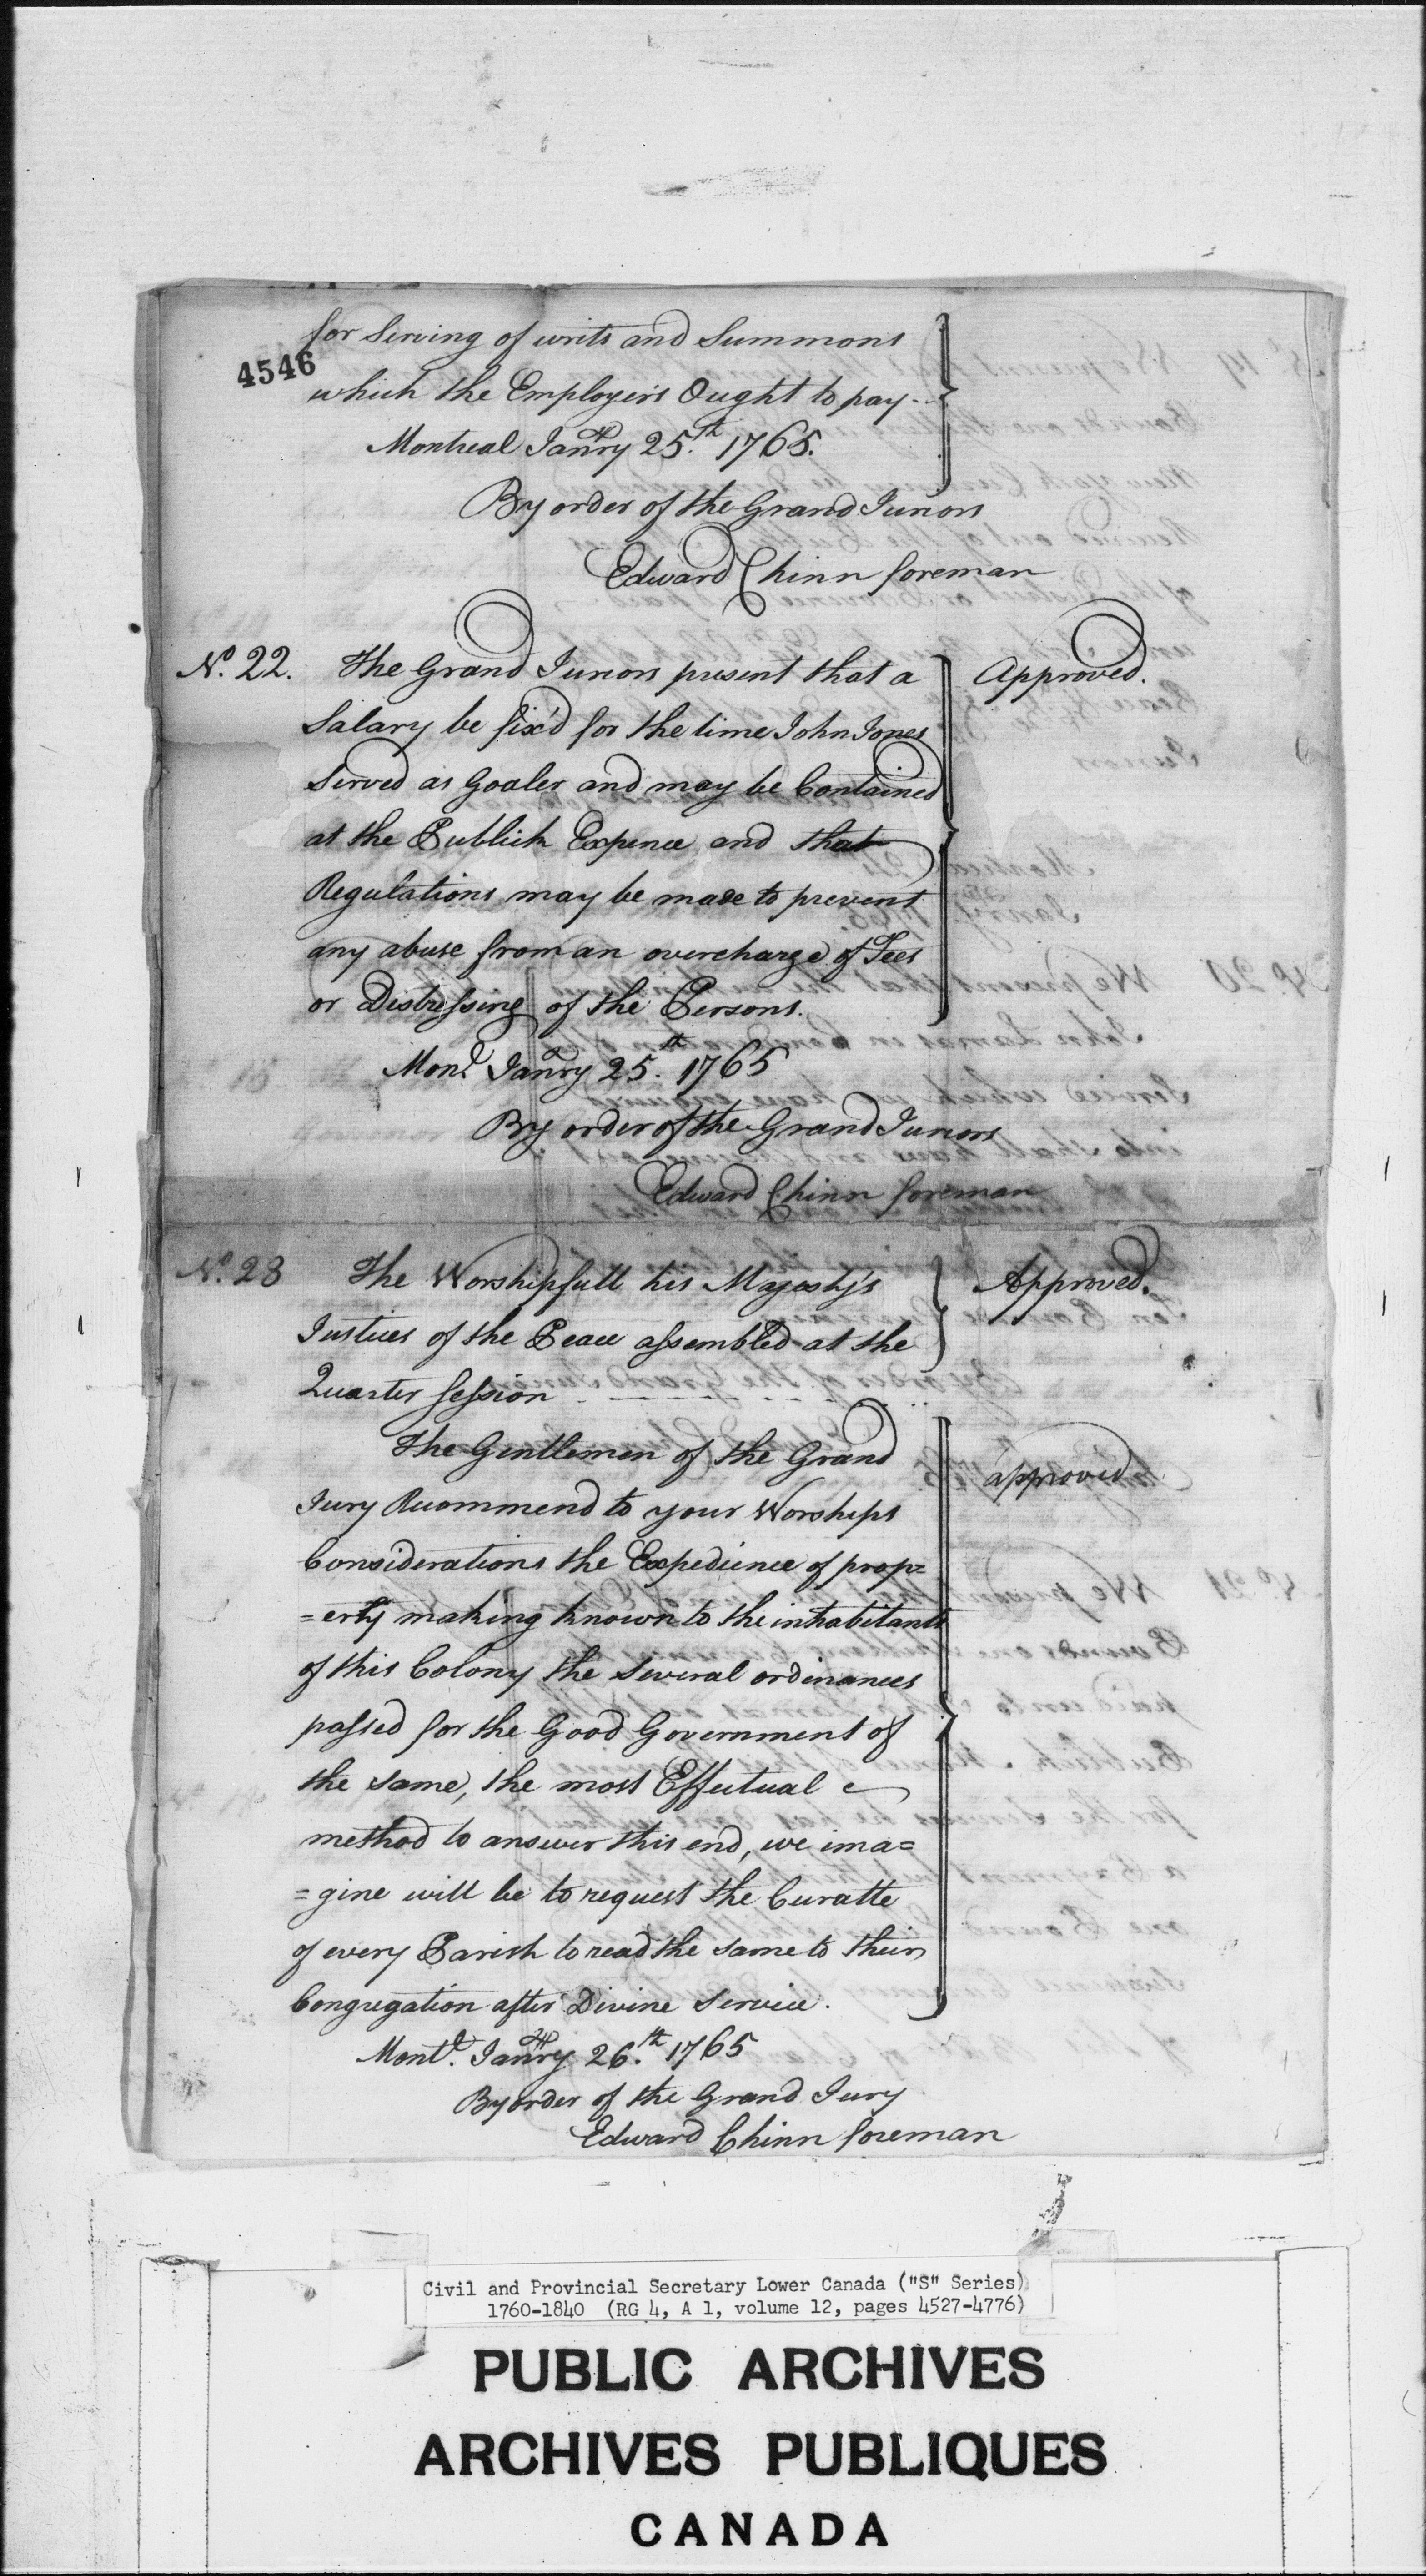 for Serving of writs and Summons
4546
which the Employers Ought to pay
Montreal Janry 25th 1765.
By order of the Grand Jurors
Edward Chinn foreman
No. 22. The Grand Jurors present that a
Approved.
Salary be fix'd for the time John Jones
Served as Goaler and may be Contained
at the Publick Expence and that
Regulations may be made to prevent
any abuse from an overcharge of Fees
or Distressing of the Persons.
Monl. Janry 25th 1765
By order of the Grand Jurors
Edward Chinn foreman
No. 23 The Worshipfull his Majesty's
Approved.
Justices of the Peace assembled at the
Quarter Session
The Gentlemen of the Grand
approved
Jury Recommend to your Worships
Considerations the Expedience of prop=
=erly making known to the inhabitants
of this Colony the several ordinances
passed for the Good Government of
the same, the most Effectual
method to answer this end, we ima=
=gine will be to request the Curatte
of every Parish to read the same to their
Congregation after Divine Service.
Montl. Janry 26th 1765
By order of the Grand Jury
Edward Chinn foreman
Civil and Provincial Secretary Lower Canada ("S" Series)
1760-1840 (RG 4, A 1, volume 12, pages 4527-4776)
PUBLIC ARCHIVES
ARCHIVES PUBLIQUES
CANADA